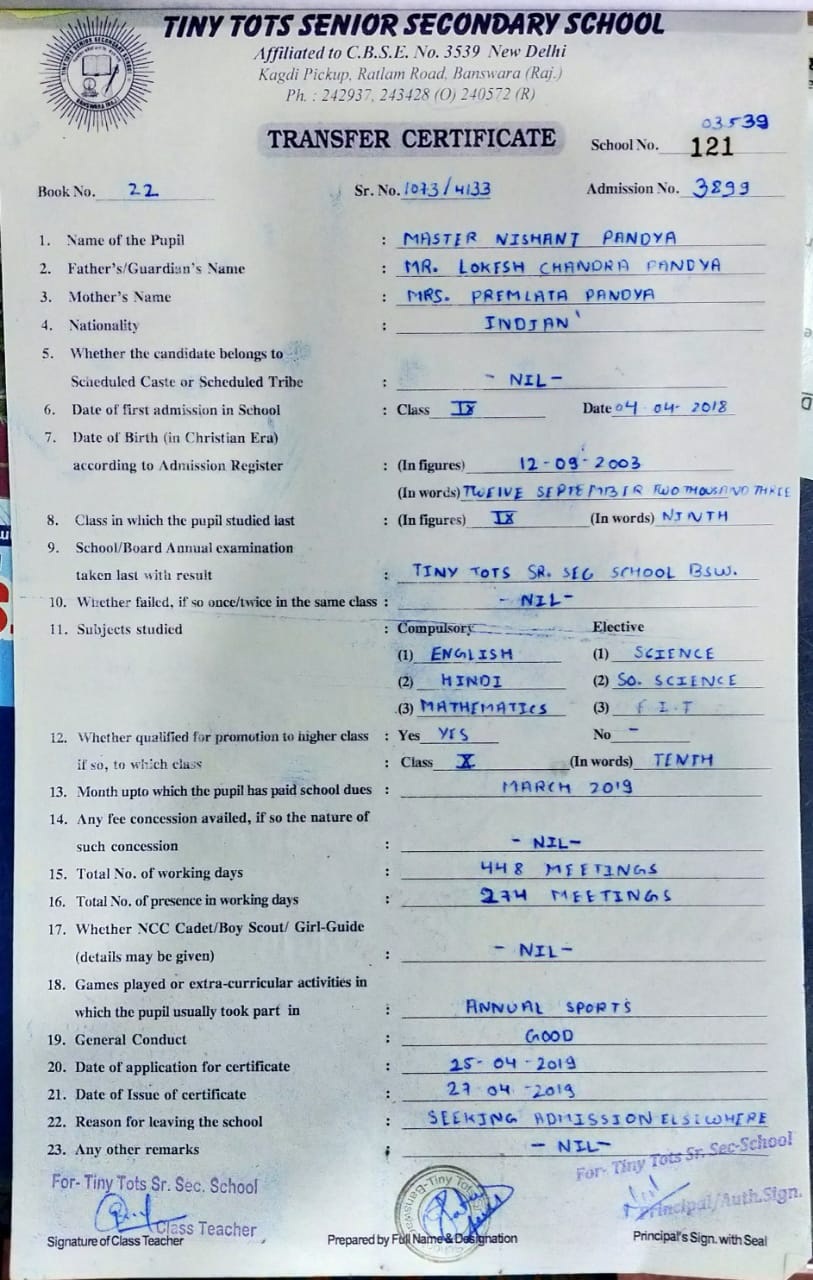 TINY TOTS SENIOR SECONDARY SCHOOL
Affiliated to C.B.S.E. No. 3539 New Delhi
Kagdi Pickup, Ratlam Road, Banswara (Raj.)
Ph. : 242937, 243428 (O) 240572 (R)
TRANSFER CERTIFICATE
03539
School No. 121
Book No. 22 Sr. No. 1073/4133 Admission No. 3899
1. Name of the Pupil : MASTER NISHANT PANDYA
2. Father's/Guardian's Name : MR. LOKESH CHANDRA PANDYA
3. Mother's Name : MRS. PREMLATA PANDYA
4. Nationality : INDIAN
5. Whether the candidate belongs to
Scheduled Caste or Scheduled Tribe : - NIL -
6. Date of first admission in School : Class IX Date 04-04-2018
7. Date of Birth (in Christian Era)
according to Admission Register : (In figures) 12-09-2003
(In words) TWELVE SEPTEMBER TWO THOUSAND THREE
8. Class in which the pupil studied last : (In figures) IX (In words) NINTH
9. School/Board Annual examination
taken last with result : TINY TOTS SR. SEC SCHOOL BSW.
10. Whether failed, if so once/twice in the same class : - NIL -
11. Subjects studied : Compulsory Elective
(1) ENGLISH (1) SCIENCE
(2) HINDI (2) SO. SCIENCE
(3) MATHEMATICS (3) F.I.T
12. Whether qualified for promotion to higher class : Yes YES No -
if so, to which class : Class X (In words) TENTH
13. Month upto which the pupil has paid school dues : MARCH 2019
14. Any fee concession availed, if so the nature of
such concession : - NIL -
15. Total No. of working days : 448 MEETINGS
16. Total No. of presence in working days : 274 MEETINGS
17. Whether NCC Cadet/Boy Scout/ Girl-Guide
(details may be given) : - NIL -
18. Games played or extra-curricular activities in
which the pupil usually took part in : ANNUAL SPORTS
19. General Conduct : GOOD
20. Date of application for certificate : 25-04-2019
21. Date of Issue of certificate : 27 04 -2019
22. Reason for leaving the school : SEEKING ADMISSION ELSEWHERE
23. Any other remarks : - NIL -
For- Tiny Tots Sr. Sec. School For- Tiny Tots Sr. Sec-School
Class Teacher Principal/Auth.Sign.
Signature of Class Teacher Prepared by Full Name & Designation Principal's Sign. with Seal